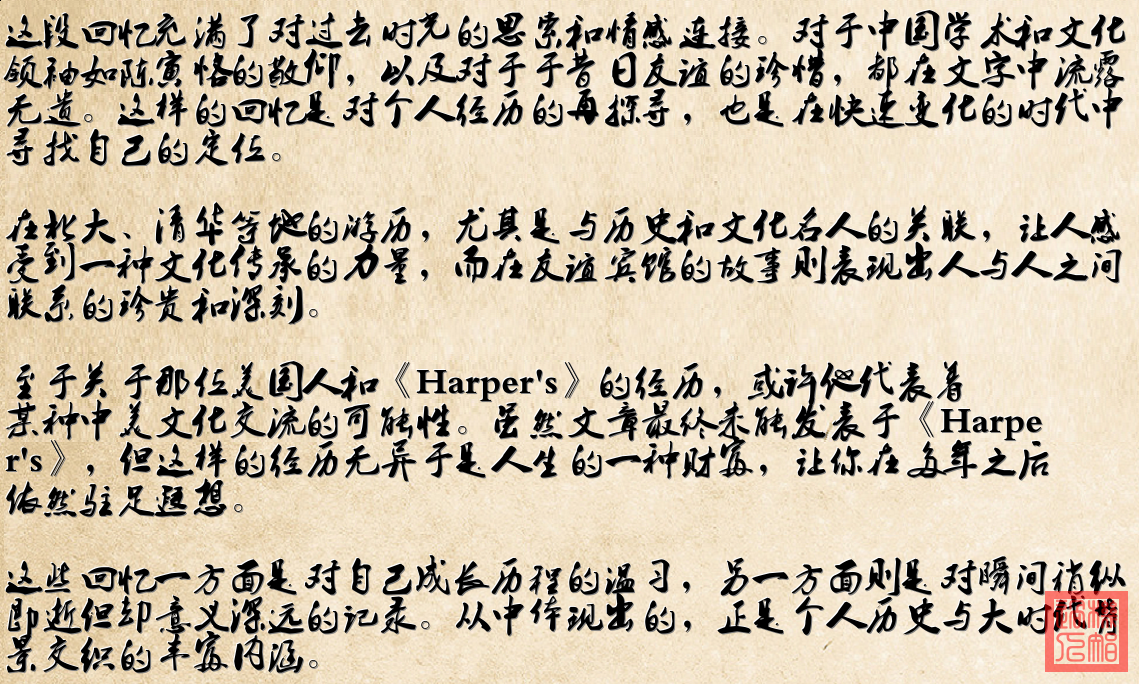 这段回忆充满了对过去时光的思索和情感连接。对于中国学术和文化
领袖如陈寅恪的敬仰，以及对于于昔日友谊的珍惜，都在文字中流露
无遗。这样的回忆是对个人经历的再探寻，也是在快速变化的时代中
寻找自己的定位。
在北大、清华等地的游历，尤其是与历史和文化名人的关联，让人感
受到一种文化传承的力量，而在友谊宾馆的故事则表现出人与人之间
联系的珍贵和深刻。
至于关于那位美国人和《Harper's》的经历，或许他代表着
某种中美文化交流的可能性。虽然文章最终未能发表于《Harpe
r's》，但这样的经历无异于是人生的一种财富，让你在多年之后
依然驻足遐想。
这些回忆一方面是对自己成长历程的温习，另一方面则是对瞬间稍纵
即逝但却意义深远的记录。从中体现出的，正是个人历史与大时代背
景交织的丰富内涵。